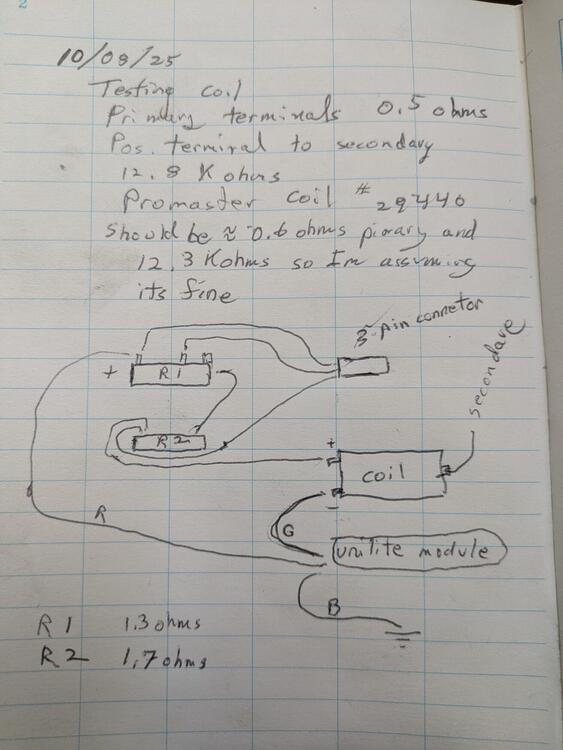 2
10/09/25
Testing coil
Primary terminals 0.5 ohms
Pos. terminal to secondary
12.8 K ohms
Promaster coil # 29440
Should be ≈ 0.6 ohms pirary and
12.3 Kohms so Im assuming
its fine
3-pin connetor
secondare
+ R1
R2
+
coil
-
G
R
unilite module
B
R1 1.3 ohms
R2 1.7 ohms